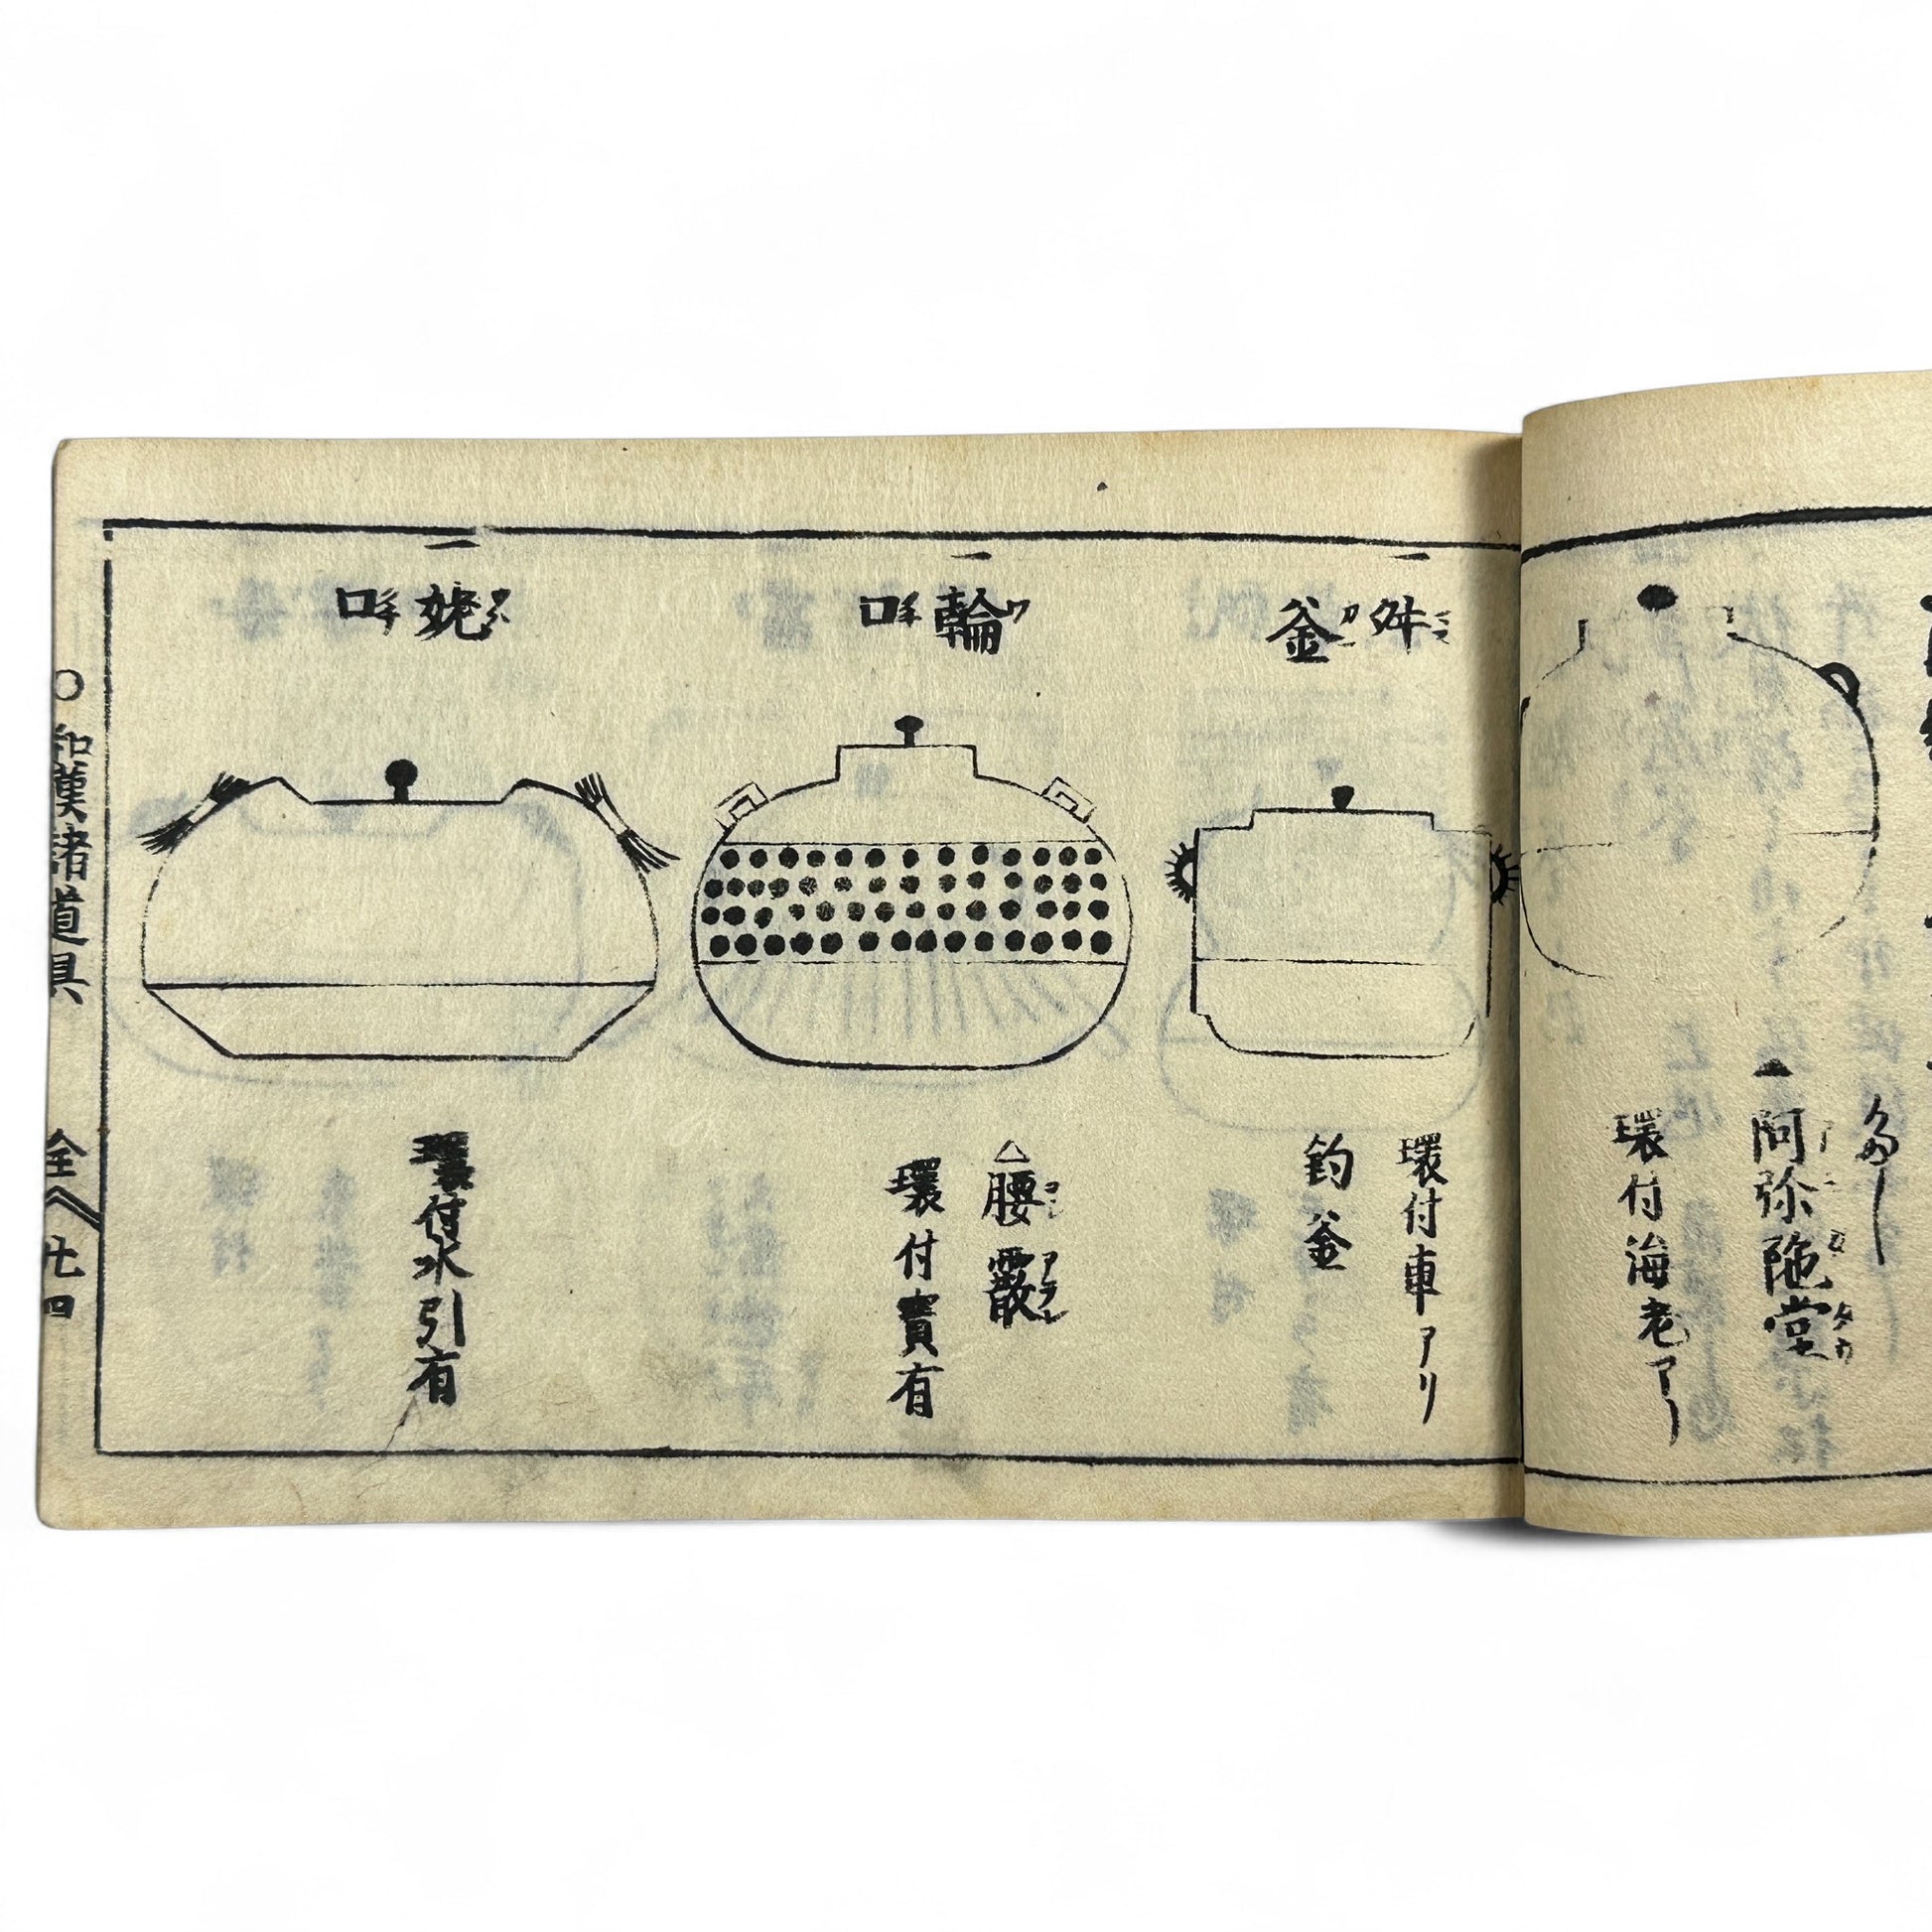 多し
▲阿弥陁堂
環付海老アリ
一
舛釜
環付車アリ
釣釜
一
輪口
△腰霰
環付寳有
一
姥口
環付水引有
○和漢諸道具 全 廿四